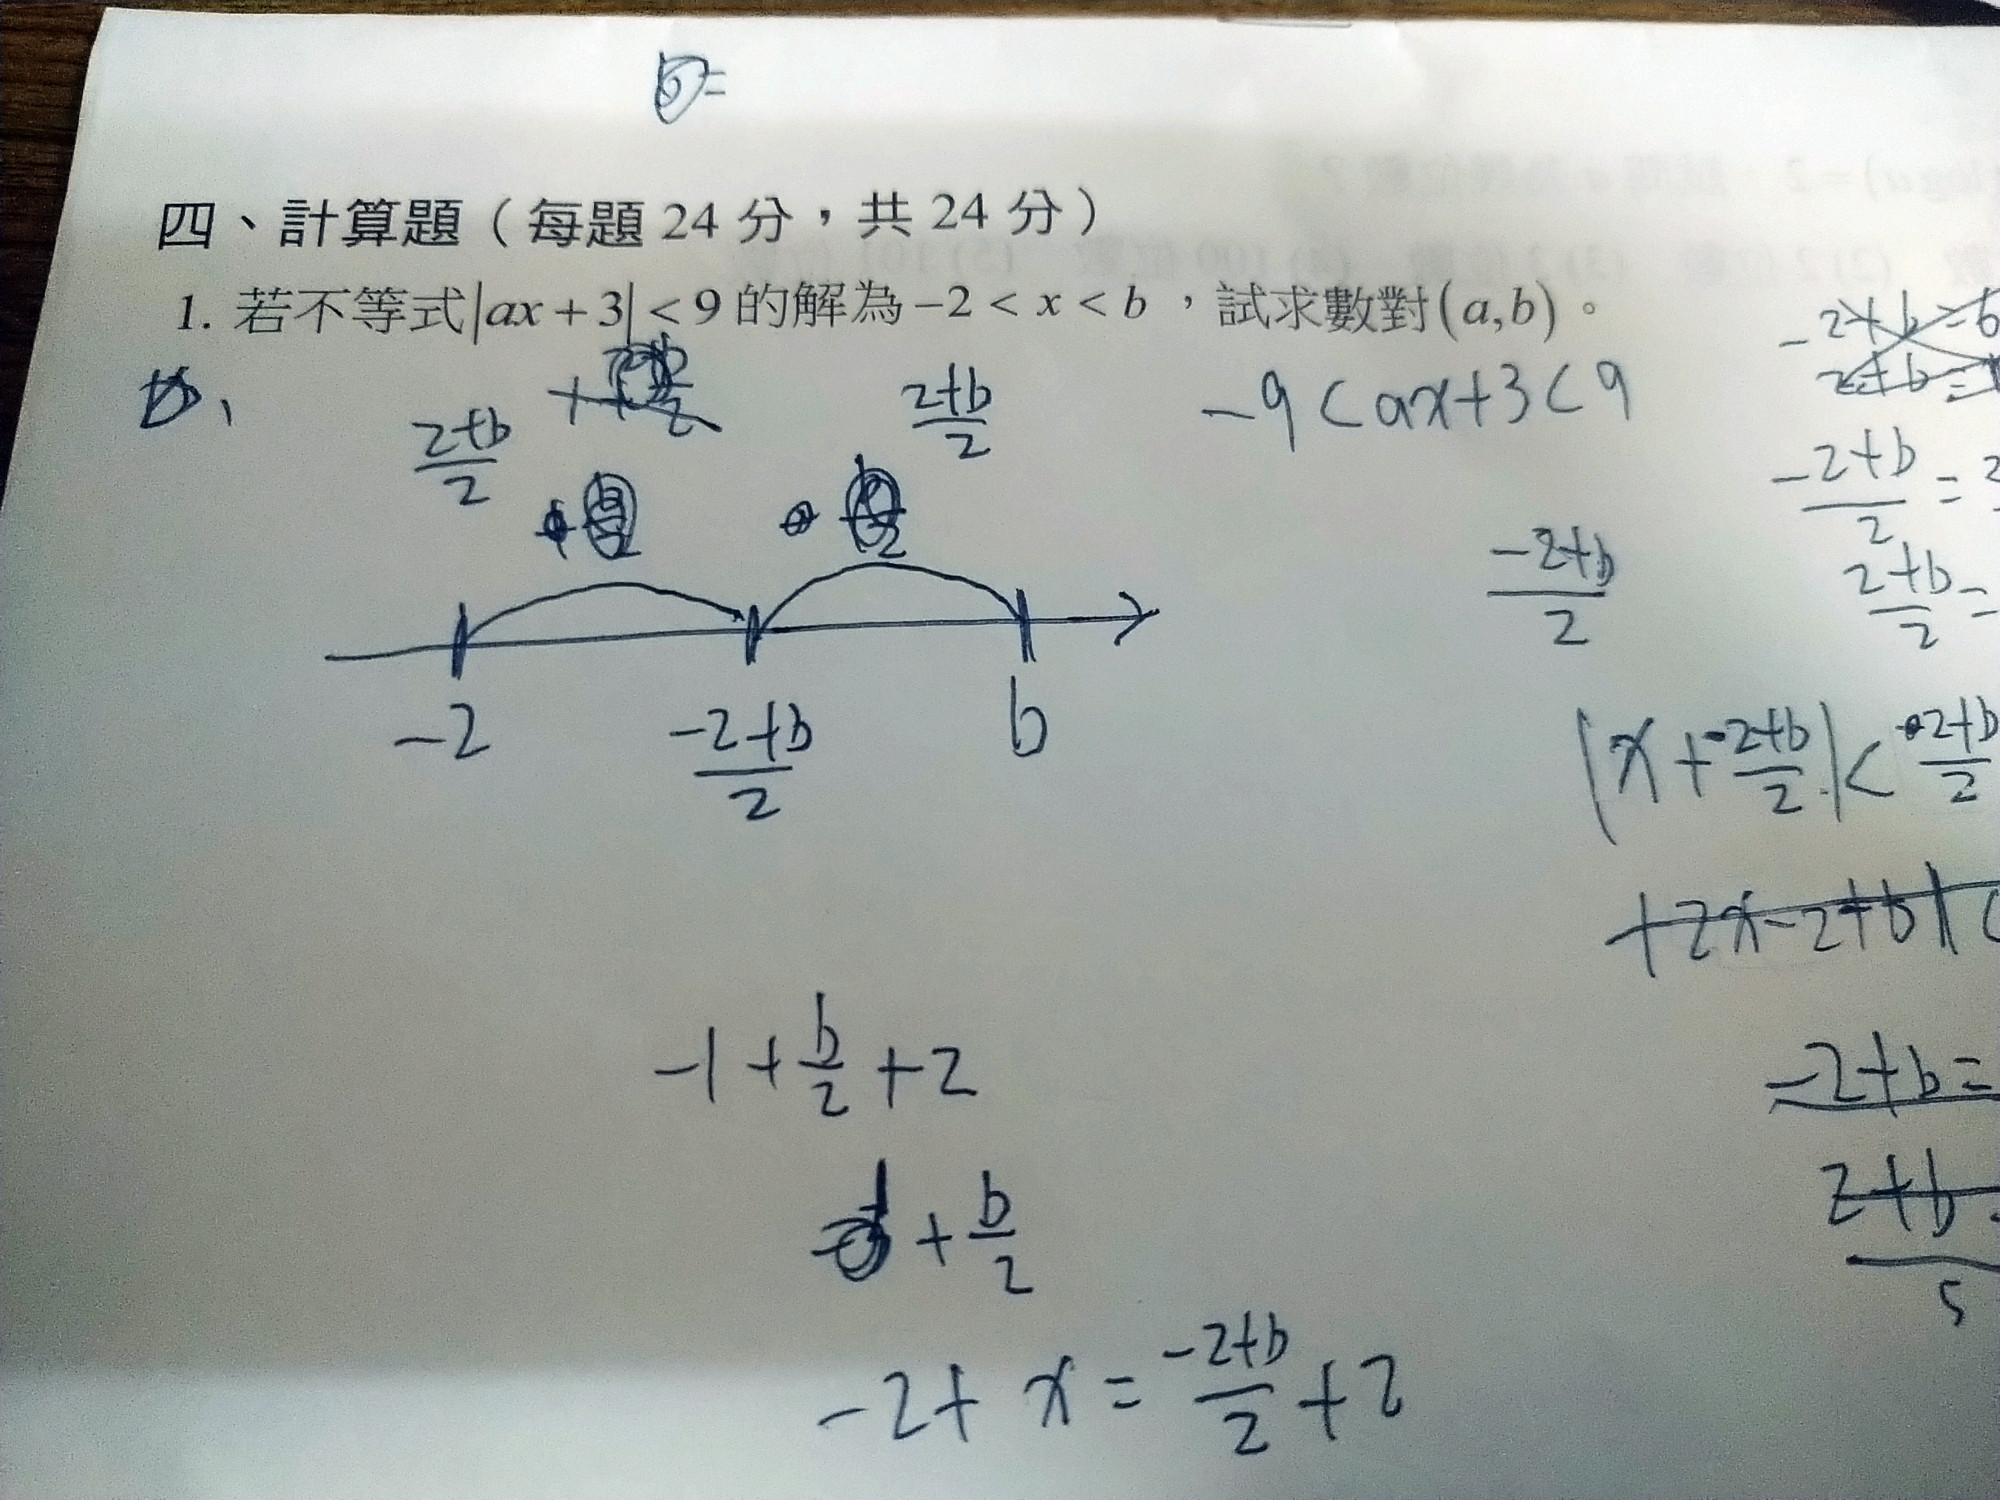 b=
四、計算題（每題 24 分，共 24 分）
1. 若不等式|ax+3|<9 的解為 −2 < x < b ，試求數對(a,b)。
-2+b=6
2+b=
2+b/2
2+b/2
-9<ax+3<9
-2+b/2 =
-2+b/2
2+b/2 =
-2
-2+b/2
b
|x+-2+b/2|< 2+b/2
+2x-2+b|<
-1+b/2+2
-2+b=
1+b/2
2+b
5
-2+x=-2+b/2+2